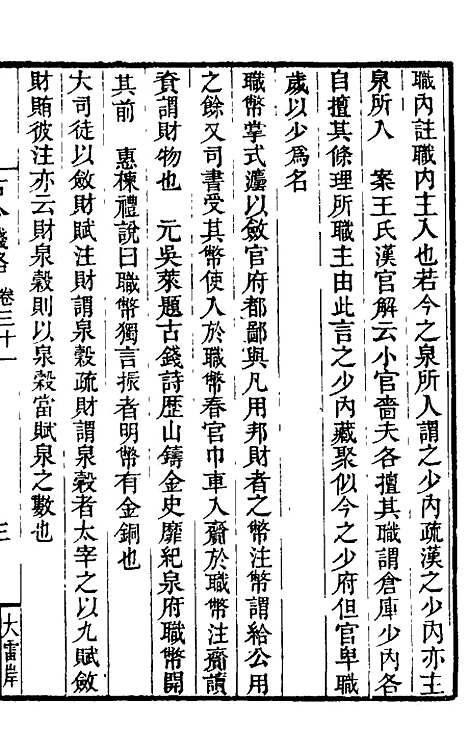 職內註職內主入也若今之泉所入謂之少內疏漢之少內亦主
泉所入　案王氏漢官解云小官嗇夫各擅其職謂倉庫少內各
自擅其條理所職主由此言之少內藏聚似今之少府但官卑職
歲以少為名
職幣掌式灋以斂官府都鄙與凡用邦財者之幣注幣謂給公用
之餘又司書受其幣使入於職幣春官巾車入齎於職幣注齎讀
資謂財物也　元吳萊題古錢詩歷山鑄金史靡紀泉府職幣開
其前　惠棟禮說曰職幣獨言振者明幣有金銅也
大司徒以斂財賦注財謂泉穀疏財謂泉穀者太宰之以九賦斂
財賄彼注亦云財泉穀則以泉穀當賦泉之數也
古今錢略　卷三十一　三　大雷岸